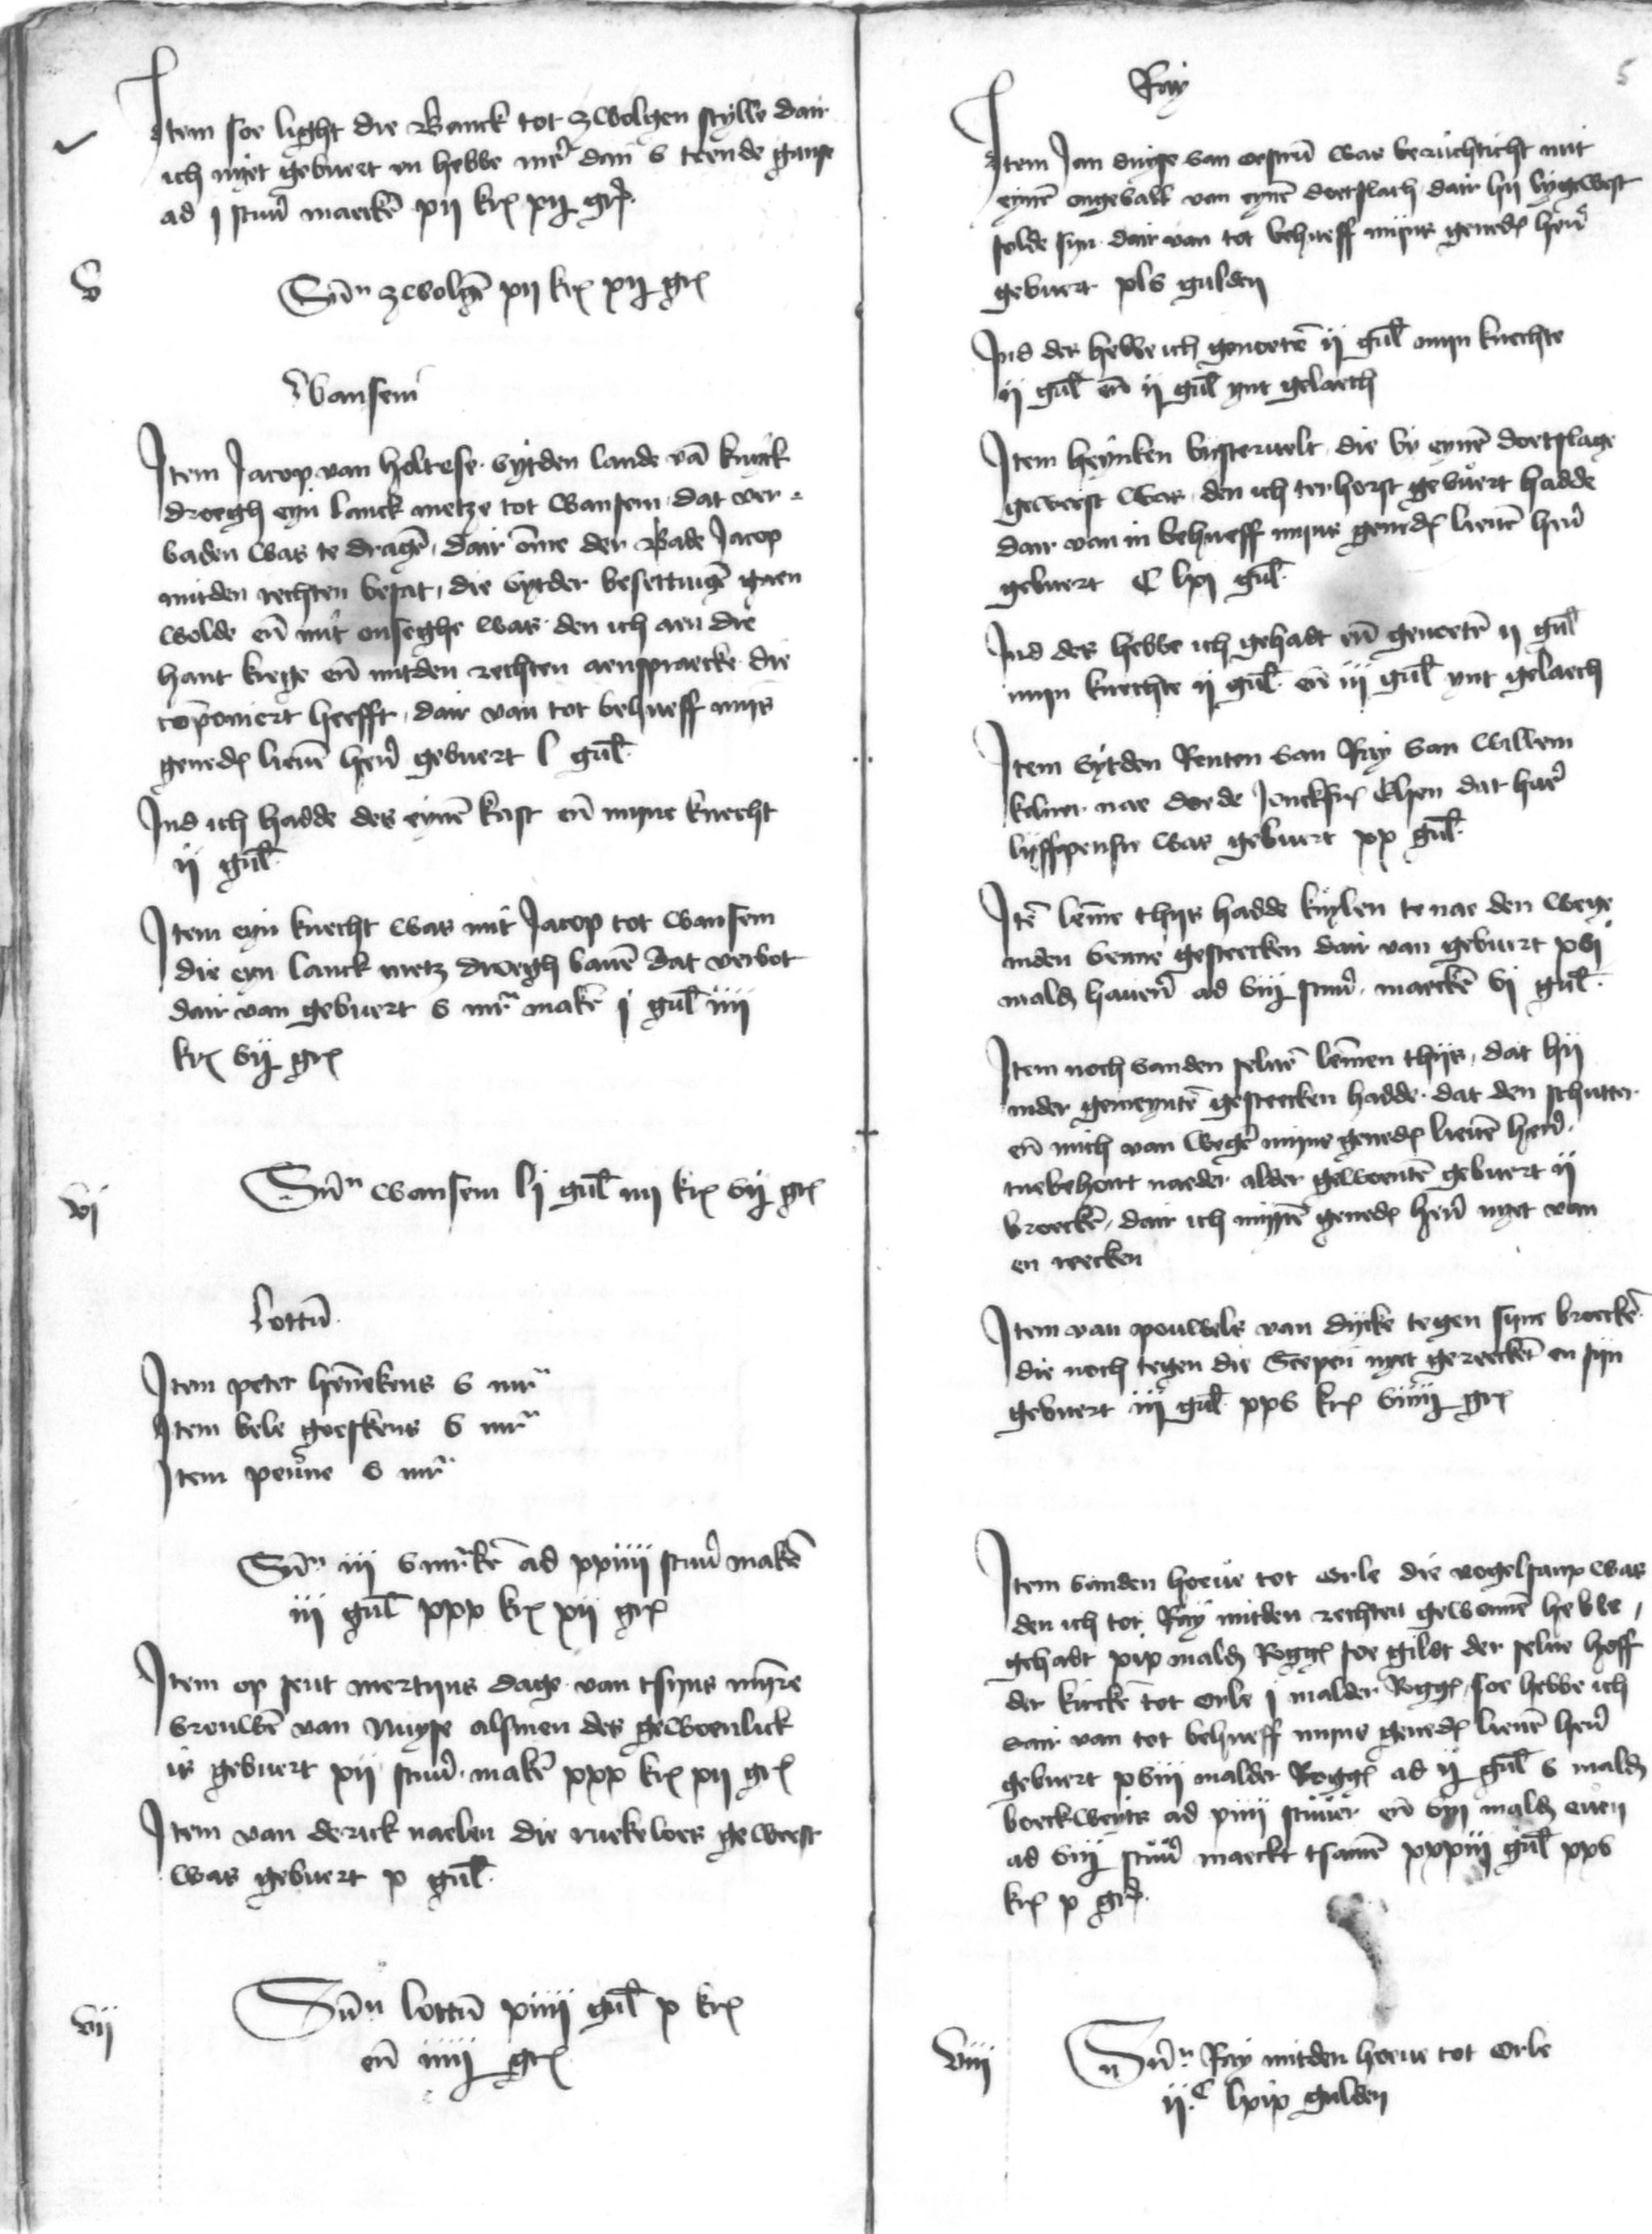 Item soe light die Banck tot Zwolgen stylle dair
ich nyet gebuert en hebbe mer dan v teende gense
ad j stuver maecken xij krẜ xij grẜ
V
Suma zwolgen xij krẜ xij grẜ
Wansem
Item Jacop van Holtese uytden lande va kuyck
droegh eyn lanck metze tot wansem dat ver-
baden was te dragen, dair ome der Bade Jacop
mitden rechten besat, die uytder besettinge gaen
wolde en mit onseghe was den ich aen die
hant krege en mitden rechten aenspraecke die
componiert heefft, dair van tot behueff mijns
genedẜ lieue heren gebuert l gul.
Ind ich hadde des eyne last en myne knecht
ij gul.
Item eyn knecht was mit Jacop tot wansem
die eyn lanck metz droegh bauen dat verbot
dair van gebuert v mrc maken j gul iiij
krẜ vij grẜ
vj
Suma wansem lj gul iiij krẜ vij grẜ
Lottu
Item peter hennekens v mrc
Item bele goeskens v mrc
Item peuwe v mrc
Suma iij v mrcken ad xxiiij stuver maken
iij gul xxx krẜ xij grẜ
Item op sent mertijns dage van tsyns mijre
vrouwen van Nuyse alsmen des gewoenlick
is gebuert xij stuver maken xxx krẜ xij grẜ
Item van derick naelen die ruekeloes geweest
was gebuert x gul.
vij
Suma lottu xiiij gul x krẜ
en iiij grẜ
5
Ray
Item Jan duige van oestru was beruchticht mit
eynen ongevall van eynen doetslach dair hij by gewest
solde syn dair van tot behueff mijns genedẜ heren
gebuert xlv gulden
Ind des hebbe ich genoeten ij gul mijn knechte
ij gul en ij gul ynt gelaech
Item heynken bystervelt die by eynen doetslage
geweest was den ich ter horst gebuert hadde
dair van in behueff mijns genedẜ lieuen heren
gebuert C lxj gul.
Ind des hebbe ich gehadt en genoeten ij gul
mijn knechte ij gul. en iij gul ynt gelaech
Item uytden Renten van Ray van willem
kelner nae doede Jonckfrẜ Elsen dat haer
lyffpensie was gebuert xx gul.
Ite lemme thijs hadde kuylen te nae den wege
inden venne gesteecken dair van gebuert xvj
mald haueren ad viij stuver maecken vj gul.
Item noch vanden seluen lemmen thijs, dat hij
inder gemeynten gesteecken hadde dat den schutter
en mich van wegen mijns genedẜ lieuen heren
tuebehoert naeder alder gewoenten gebuert ij
broecken, dair ich mijnen genedẜ heren nyet van
en reecken
Item van pouwels van dycke tegen syne broecken
die noch tegen die Scepen nyet gereeckent en sijn
gebuert iij gul. xxv krẜ viiij grẜ
Item vanden hoeue tot Orle die vogelsanx was
den ich tot Ray mitden rechten gewonnen hebbe,
gehadt xix mald Roggẜ soe gildt der selue hoff
der kircken tot Orle j malder Roggẜ, soe hebbe ich
dair van tot behueff mijns genedẜ lieuen heren
gebuert xviij malder Roggẜ ad ij gul v mald
boeckweyts ad xiiij stuver en vij mald euen
ad viij stuver maeckt tsamen xxxiij gul xxv
krẜ x grẜ
viij
Suma Ray mitden hoeue tot Orle
ij C lxix gulden